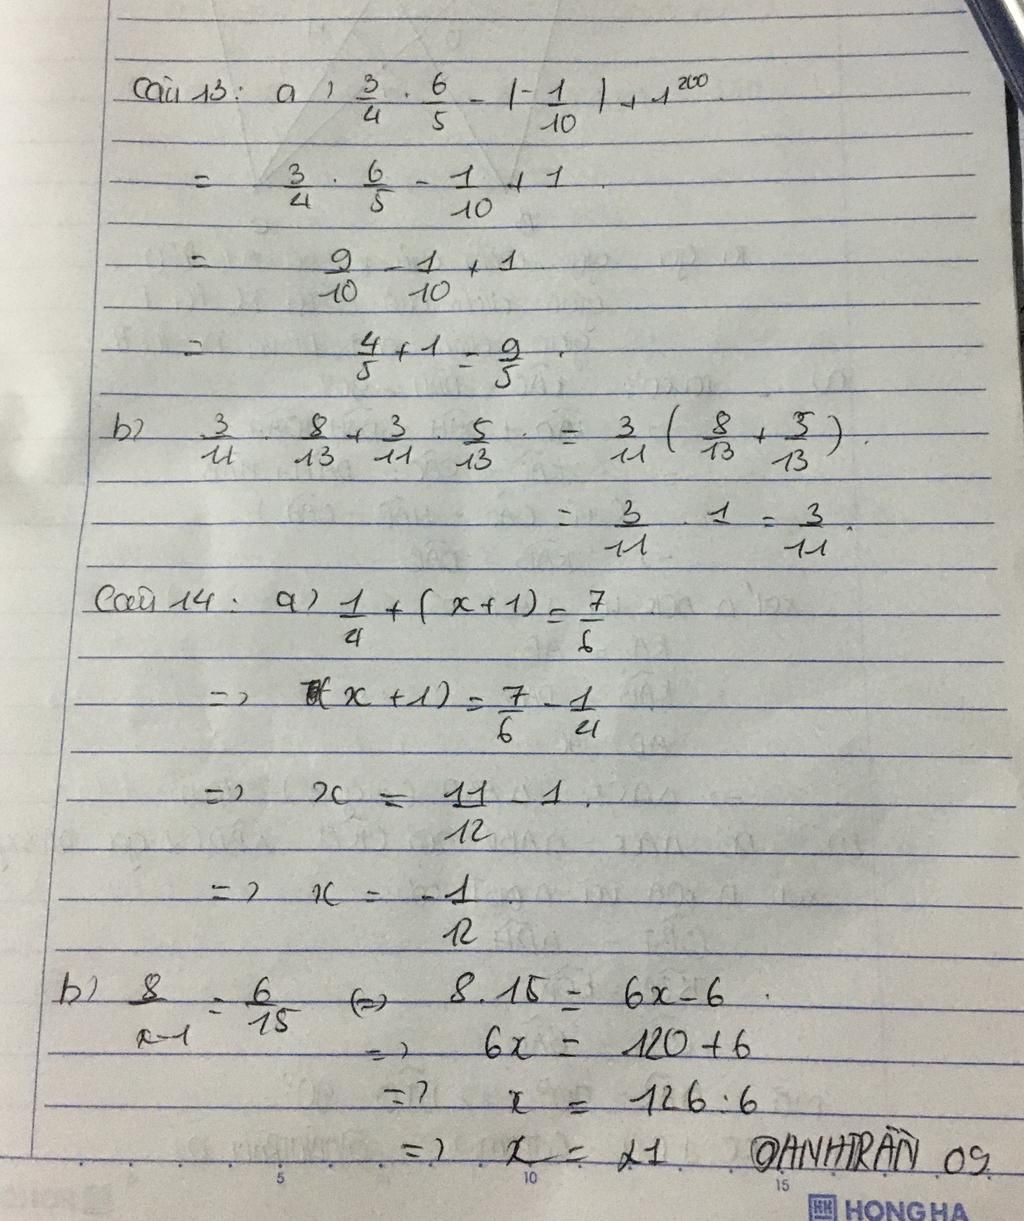 Câu 13: a) 3/4 . 6/5 - |-1/10| + 1^200.
= 3/4 . 6/5 - 1/10 + 1.
= 9/10 - 1/10 + 1
= 4/5 + 1 = 9/5.
b) 3/11 . 8/13 + 3/11 . 5/13. = 3/11 (8/13 + 5/13).
= 3/11 . 1 = 3/11.
Câu 14: a) 1/4 + (x+1) = 7/6
=> (x+1) = 7/6 - 1/4
=> x = 11/12 - 1.
=> x = -1/12
b) 8/x-1 = 6/15 (=) 8.15 = 6x-6.
=> 6x = 120+6
=> x = 126:6
=> x = 21 OANHTRẦN 09
5 10 15
HH HONG HA